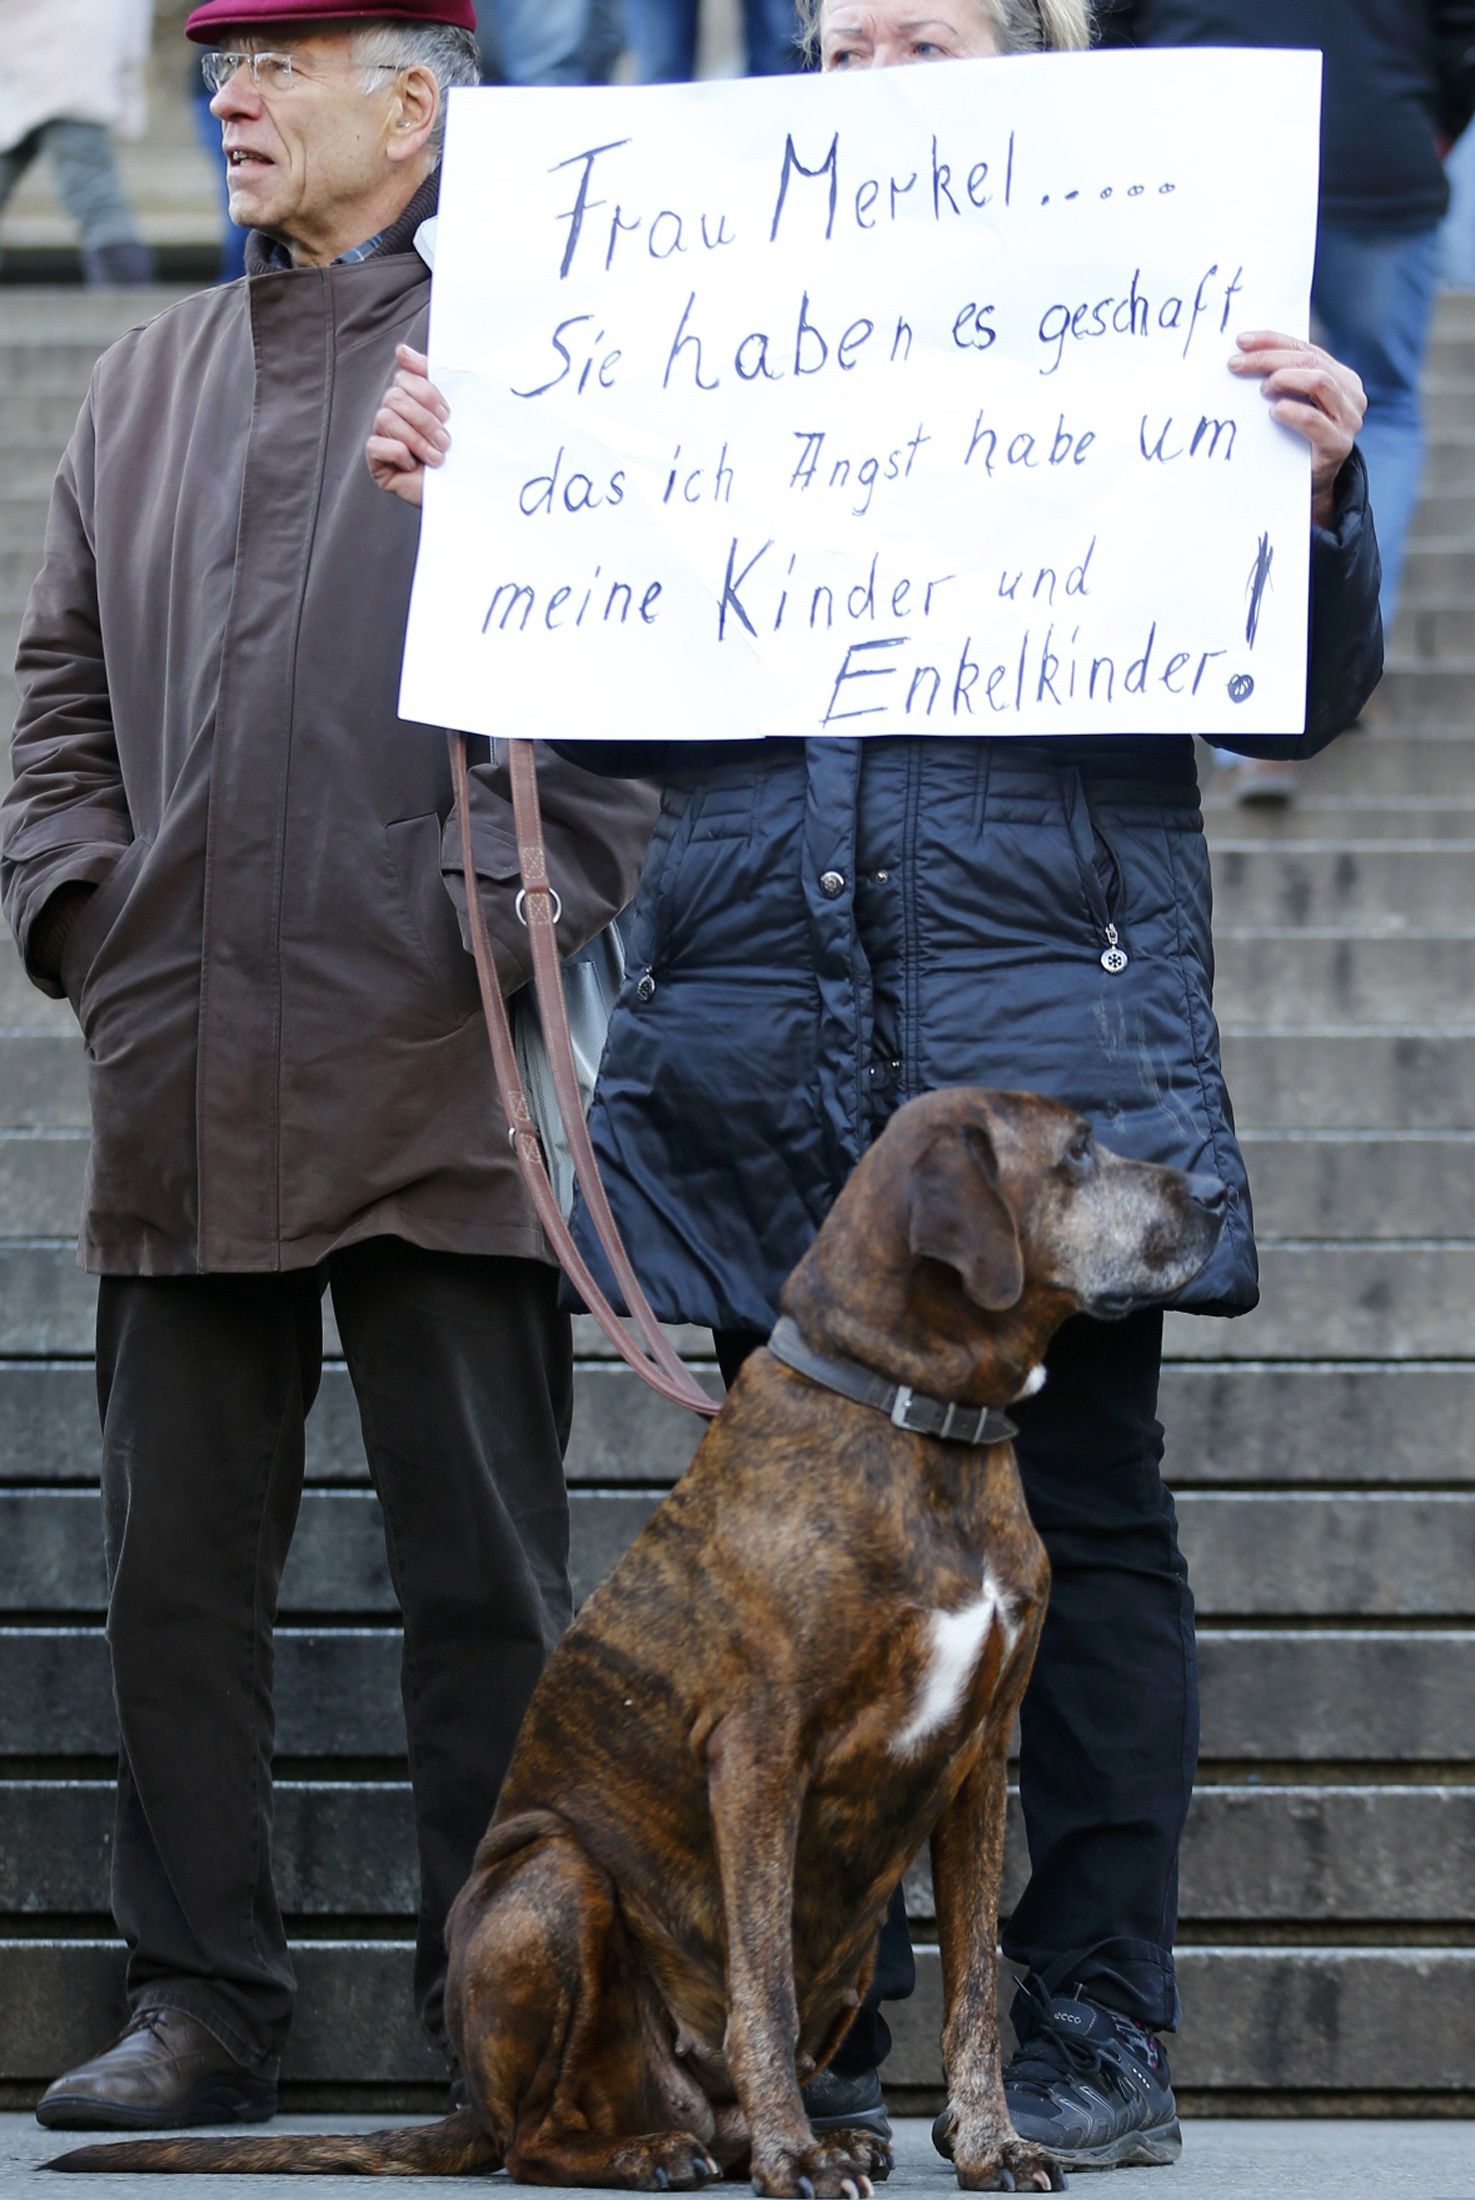 Frau Merkel.....
Sie haben es geschaft
das ich Angst habe um
meine Kinder und
Enkelkinder!
ecco